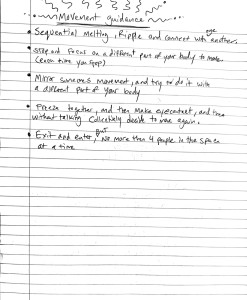 Movement guidance
• Sequential melting, Ripple and connect with one another.
• Stop and Focus on a different part of your body to move
(each time you stop)
• Mirror someones movement, and try to do it with
a different part of your body
• Freeze together, and then make eyecontact, and then
without talking collectively decide to move again.
• Exit and enter, but no more than 4 people in the space
at a time